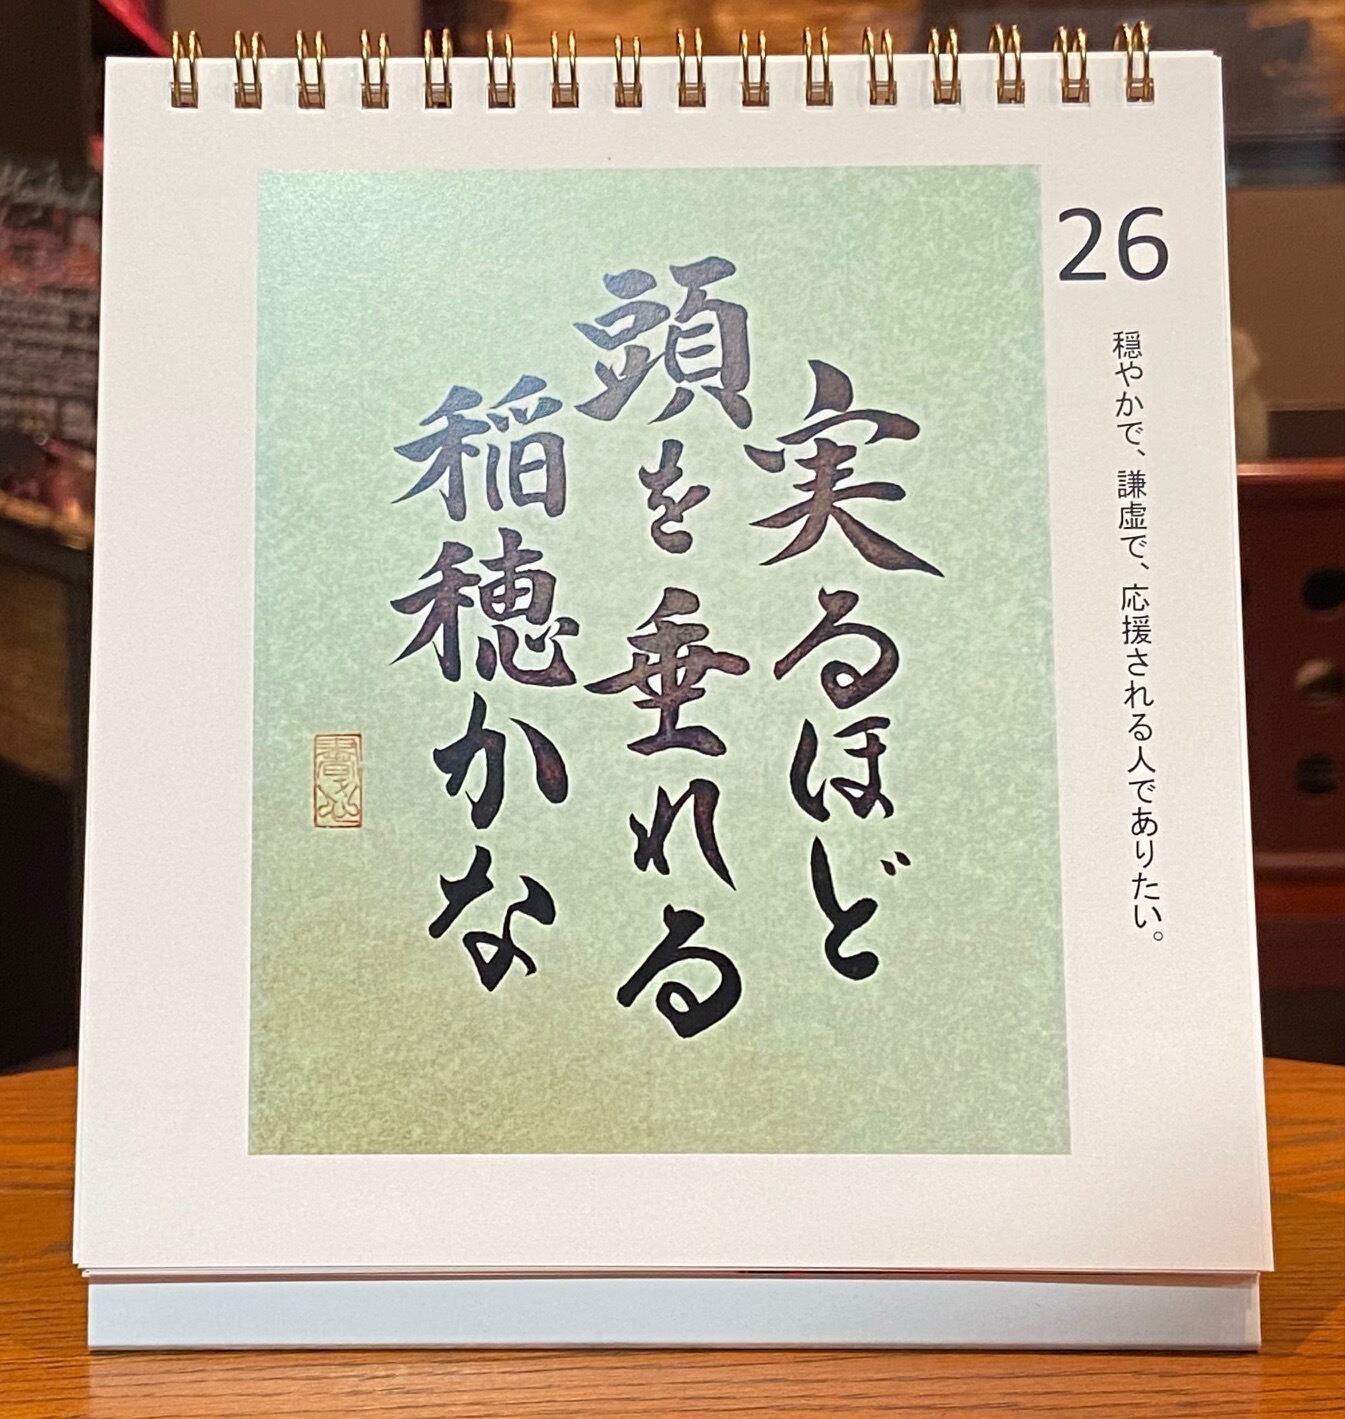 26
穏やかで、謙虚で、応援される人でありたい。
実るほど
頭を垂れる
稲穂かな